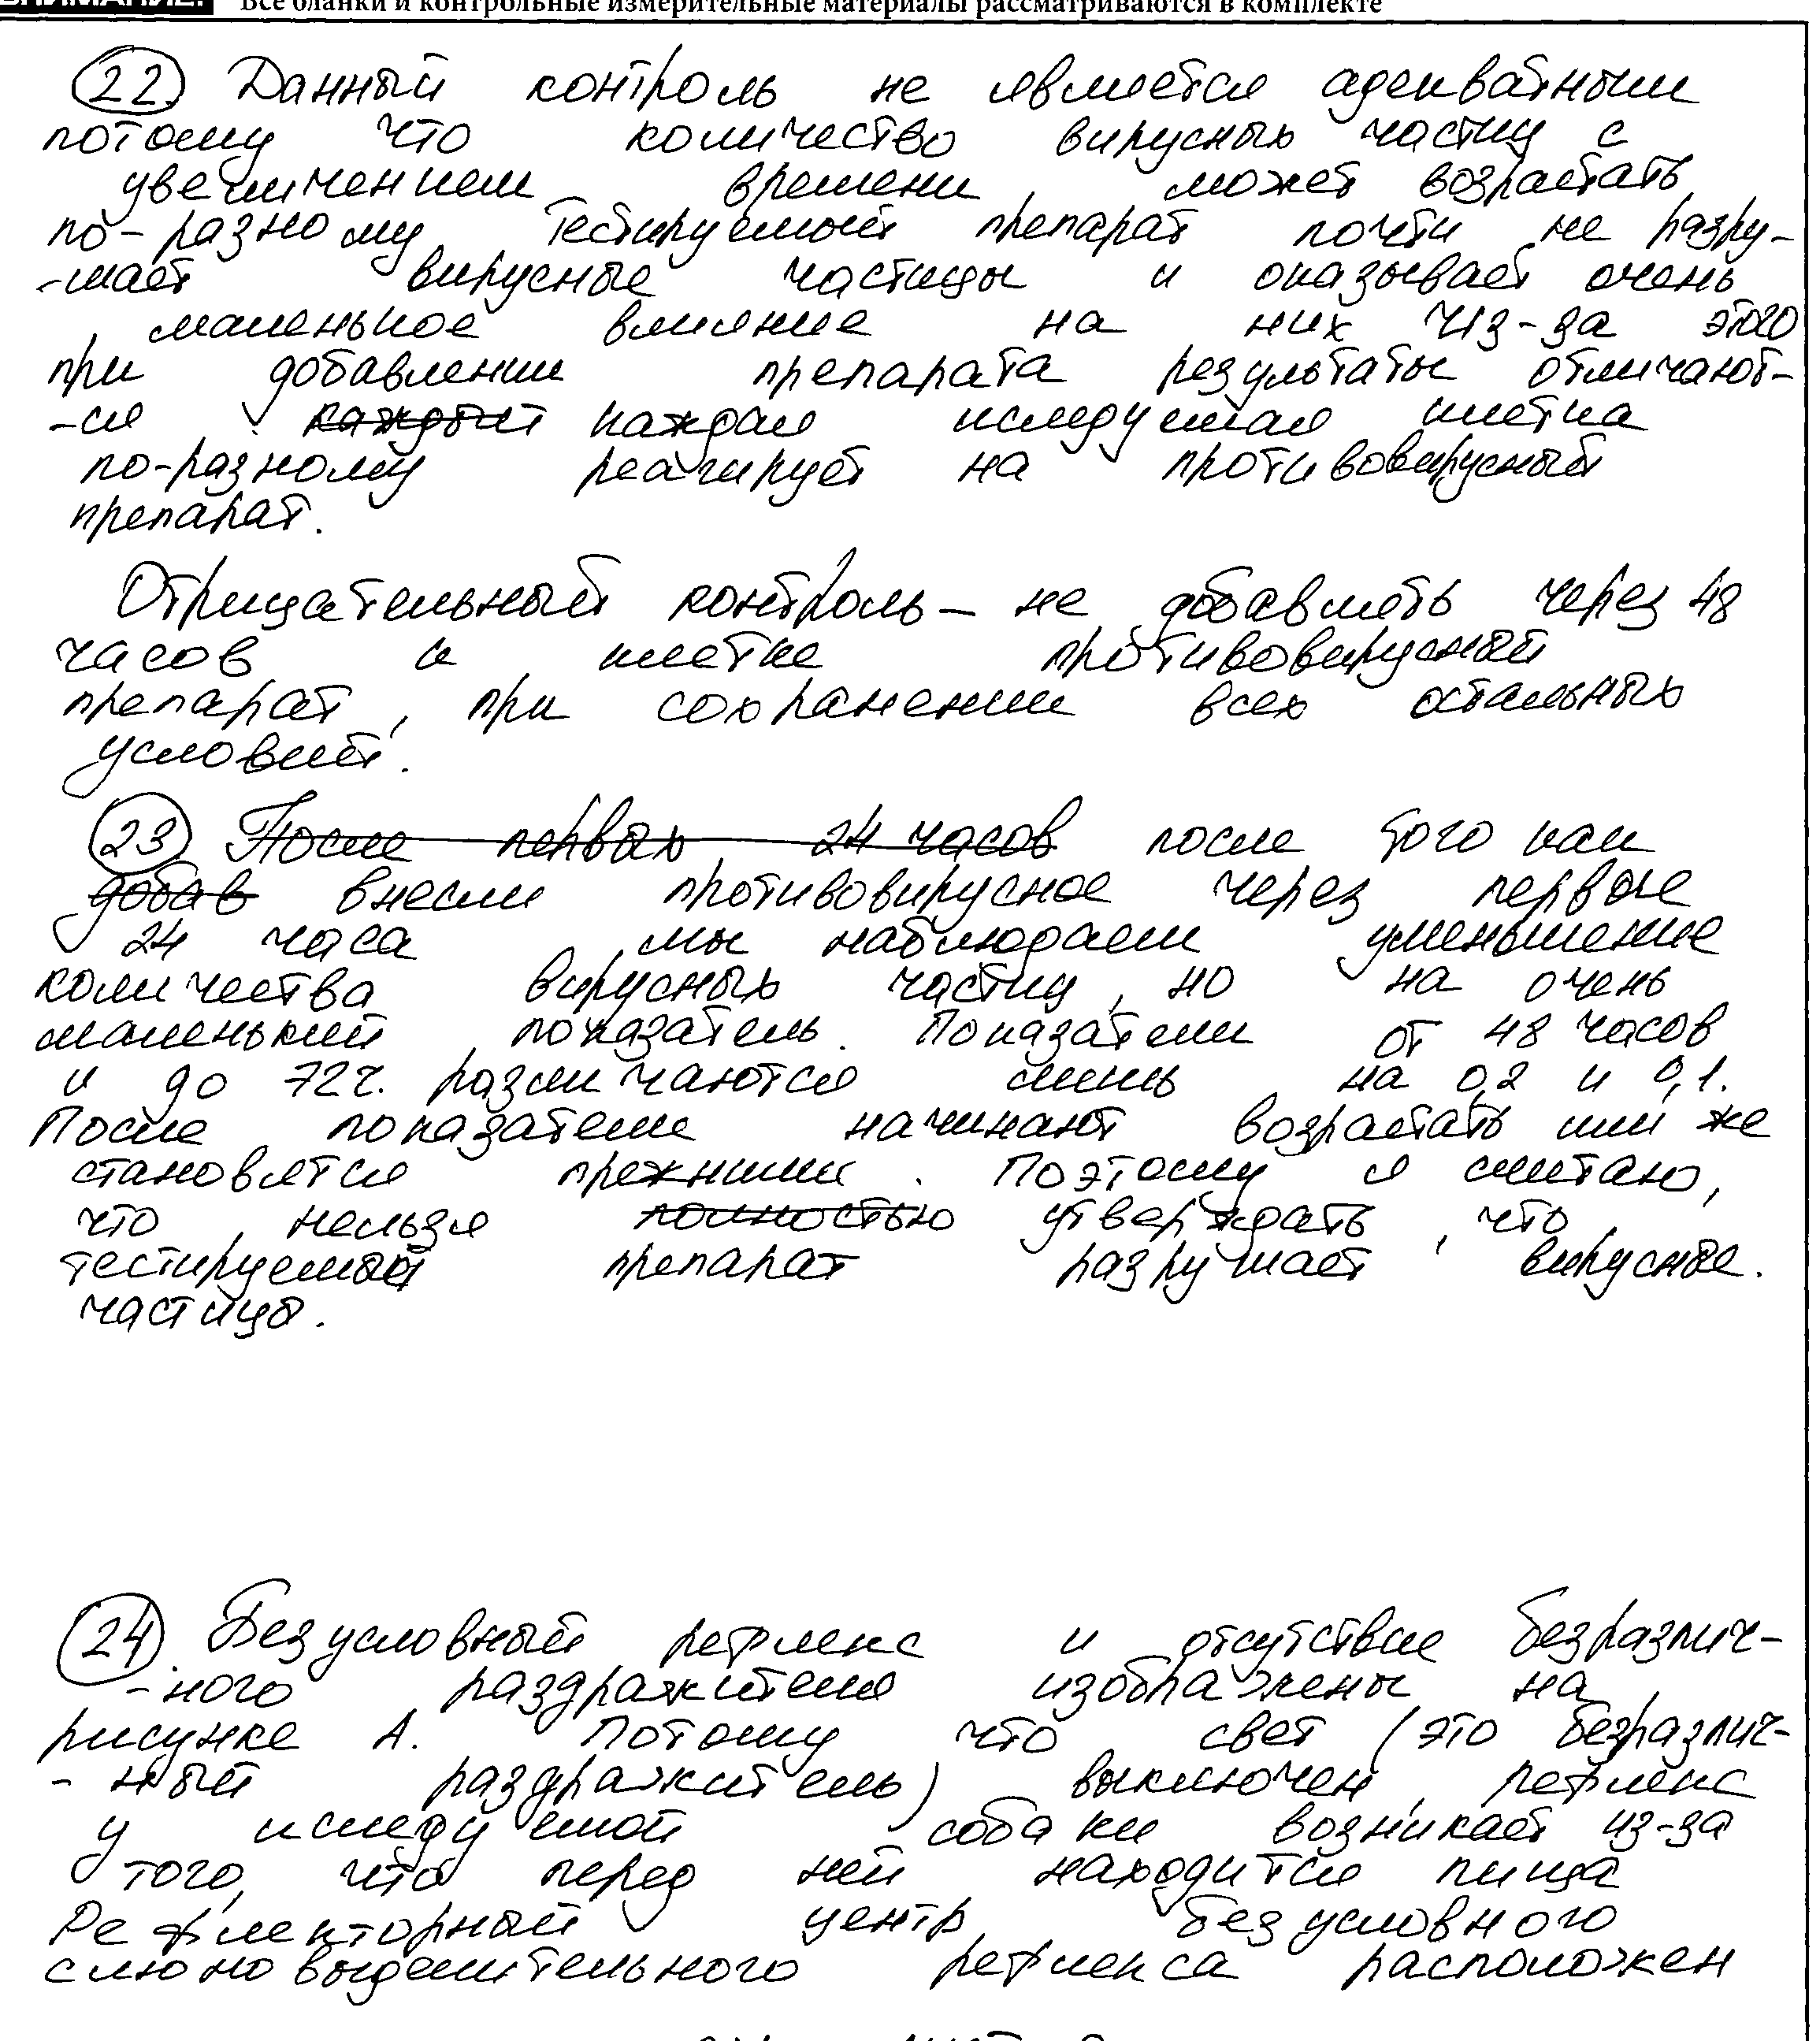 ВНИМАНИЕ! Все бланки и контрольные измерительные материалы рассматриваются в комплекте
22 Данный контроль не является адекватным
потому что количество вирусных частиц с
увеличением времени может возрастать
по-разному. Тестируемый препарат почти не разру-
-шает вирусные частицы и оказывает очень
маленькое влияние на них. Из-за этого
при добавлении препарата результаты отличают-
-ся каждый каждая иследуемая клетка
по-разному реагирует на противовирусный
препарат.
Отрицательный контроль – не добавлять через 48
часов к клетке противовирусный
препарат, при сохранении всех остальных
условий.
23 После первых 24 часов после того как
добав внесли противовирусное через первые
24 часа мы наблюдаем уменьшение
количества вирусных частиц, но на очень
маленький показатель. Показатели от 48 часов
и до 72ч. различаются лишь на 0,2 и 0,1.
После показатели начинают возрастать или же
становятся прежними. Поэтому я считаю,
что нельзя полностью утверждать, что
тестируемый препарат разрушает вирусные
частицы.
24. Безусловный рефлекс и отсутствие безразлич-
-ного раздражителя изображены на
рисунке А. Потому что свет (это безразлич-
-ный раздражитель) выключен, рефлекс
у иследуемой собаки возникает из-за
того, что перед ней находится пища
Рефлекторный центр безусловного
слюновыделительного рефлекса расположен